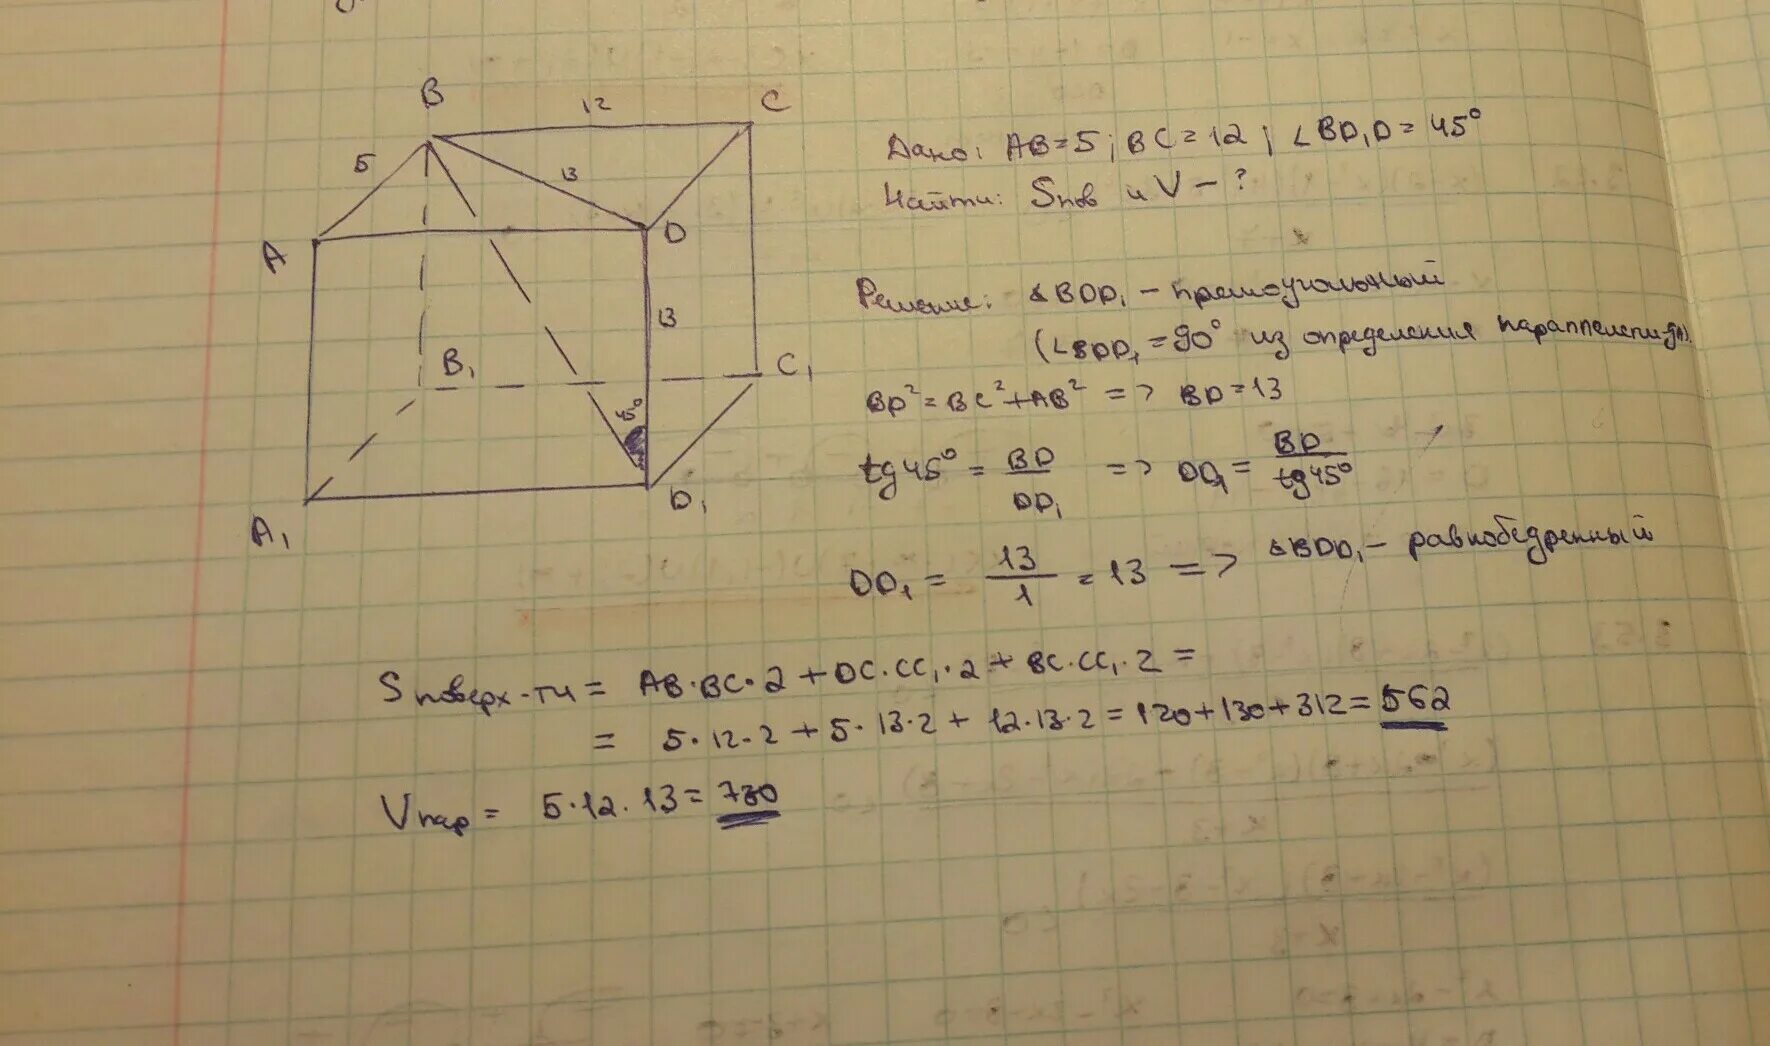 B
12
C
5
13
A
D
13
B₁
C₁
45°
D₁
A₁
Дано: AB=5; BC=12; ∠BD₁D=45°
Найти: Sпов и V - ?
Решение: ΔBDD₁ - прямоугольный
(∠BDD₁=90° из определения
BD²=BC²+AB² => BD=13
tg45° = BD/DD₁ => DD₁ = BD/tg45°
DD₁ = 13/1 = 13 => ΔBDD₁ - равнобедренный
Sповерх-ти = AB·BC·2+DC·CC₁·2+BC·CC₁·2 =
= 5·12·2+5·13·2+12·13·2=120+130+312=562
Vпар = 5·12·13=780